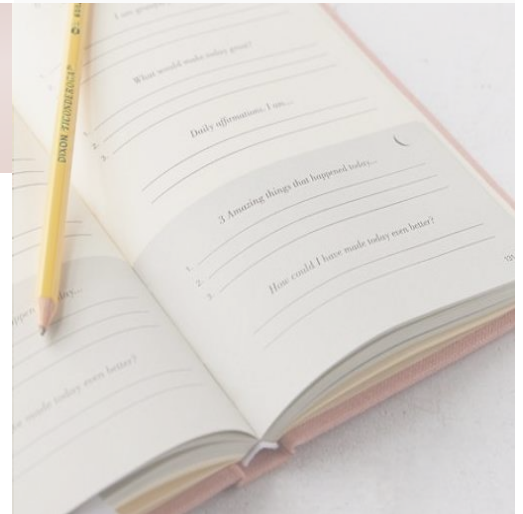 DIXON TICONDEROGA®
I am
What would make today great?
1.
2.
3.
Daily affirmations. I am...
3 Amazing things that happened today...
1.
2.
3.
How could I have made today even better?
131
made today even better?